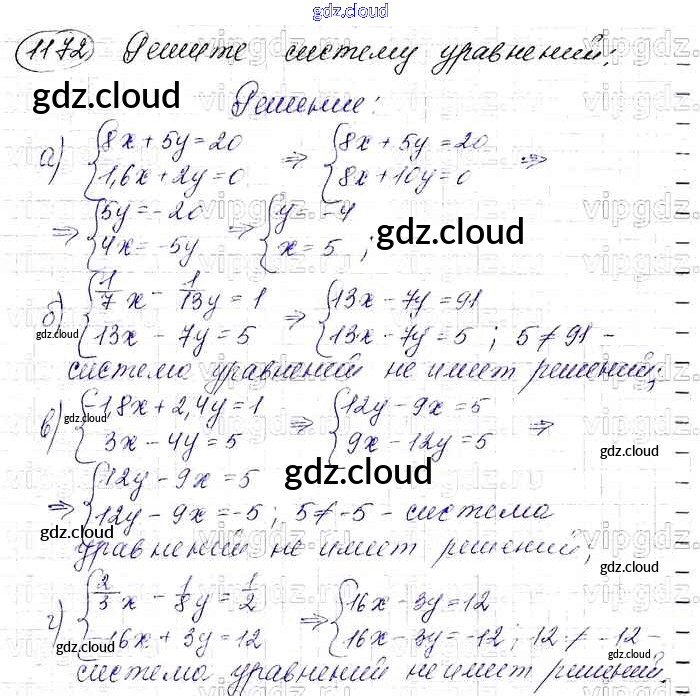 gdz.cloud
1172 Решите систему уравнений:
gdz.cloud Решение:
а) {8x + 5y = 20 ⇒ {8x + 5y = 20 ⇒
{1,6x + 2y = 0 {8x + 10y = 0
⇒ {5y = -20 ⇒ {y = -4 gdz.cloud
{4x = -5y {x = 5 ;
б) {1/7 x - 1/13 y = 1 ⇒ {13x - 7y = 91
gdz.cloud {13x - 7y = 5 {13x - 7y = 5 ; 5 ≠ 91 - gdz.cloud
система уравнений не имеет решений;
в) {-1,8x + 2,4y = 1 ⇒ {12y - 9x = 5 ⇒
gdz.cloud {3x - 4y = 5 {9x - 12y = 5 gdz.cloud
gdz.cloud
⇒ {12y - 9x = 5
{12y - 9x = -5 ; 5 ≠ -5 - система
gdz.cloud gdz.cloud
уравнений не имеет решений;
gdz.cloud
г) {2/3 x - 1/8 y = 1/2 ⇒ {16x - 3y = 12
{-16x + 3y = 12 {16x - 3y = -12 ; 12 ≠ -12 -
gdz.cloud gdz.cloud
система уравнений не имеет решений.